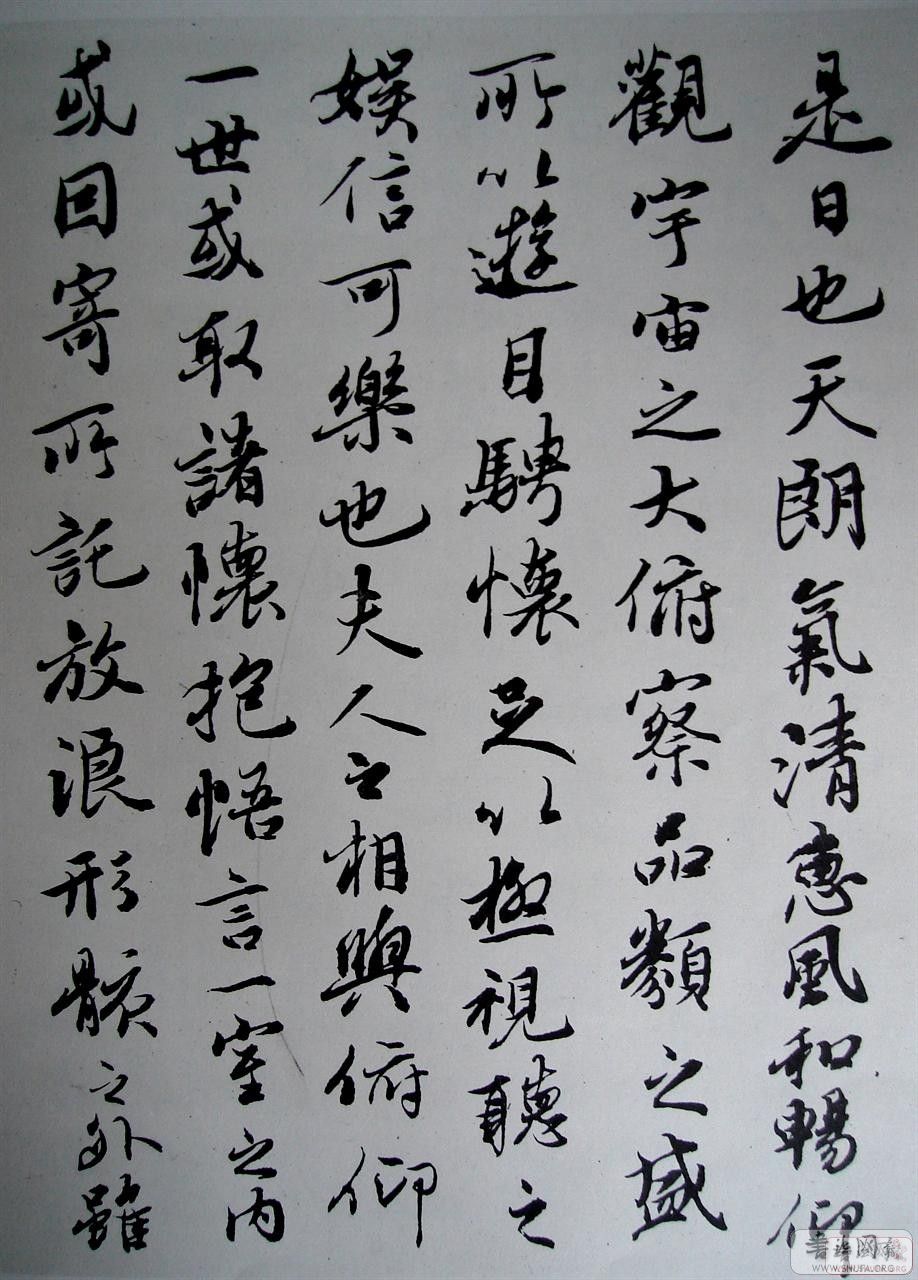 是日也天朗氣清惠風和暢仰
觀宇宙之大俯察品類之盛
所以遊目騁懷足以極視聽之
娛信可樂也夫人之相與俯仰
一世或取諸懷抱悟言一室之內
或因寄所託放浪形骸之外雖
書法國家
WWW.SHUFA.ORG